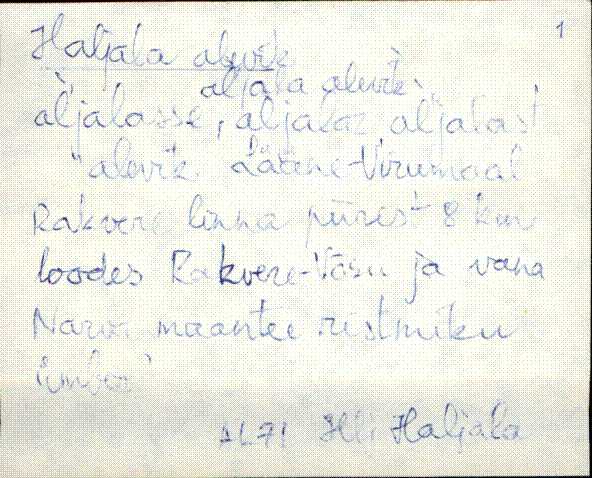 1
Haljala alevik
àljala alevìk
àljalasse, àljalaz àljalast
alevik Lääne-Virumaal
Rakvere linna piirest 8 km
loodes Rakvere-Võsu ja vana
Narva maantee ristmiku
ümber
Hlj Haljala